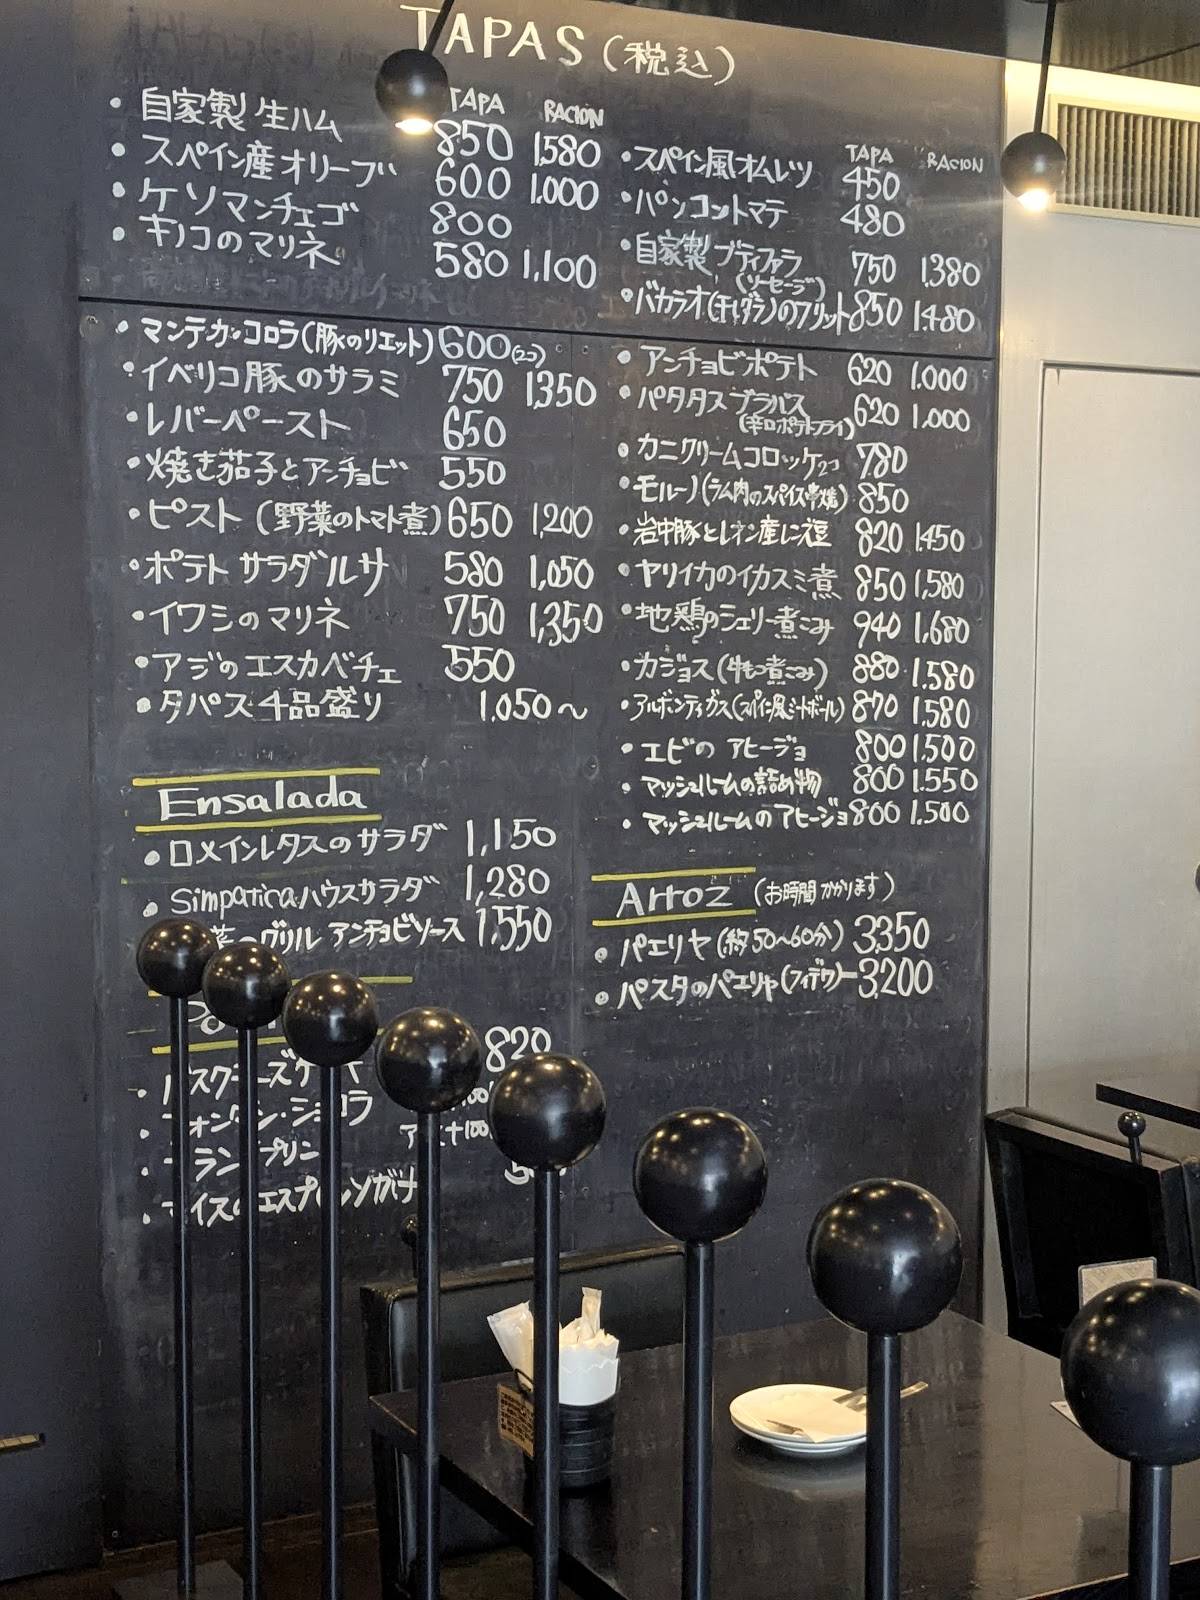 TAPAS (税込)
TAPA RACION
・自家製 生ハム 850 1,580
・スペイン産オリーブ 600 1,000
・ケソマンチェゴ 800
・キノコのマリネ 580 1,100
・マンテカ・コロラ(豚のリエット) 600(2コ)
・イベリコ豚のサラミ 750 1,350
・レバーペースト 650
・焼き茄子とアンチョビ 550
・ピスト(野菜のトマト煮) 650 1,200
・ポテトサラダルサ 580 1,050
・イワシのマリネ 750 1,350
・アジのエスカベチェ 550
・タパス4品盛り 1,050〜
Ensalada
・ロメインレタスのサラダ 1,150
・Simpaticaハウスサラダ 1,280
菜のグリル アンチョビソース 1,550
820
TAPA RACION
・スペイン風オムレツ 450
・パンコントマテ 480
・自家製ブティファラ 750 1,380
(ソーセージ)
・バカラオ(干しダラ)のフリット 850 1,480
・アンチョビポテト 620 1,000
・パタタスブラバス 620 1,000
(辛口ポテトフライ)
・カニクリームコロッケ2コ 780
・モルーノ(ラム肉のスパイス串焼) 850
・岩中豚とレオン産レンズ豆 820 1,450
・ヤリイカのイカスミ煮 850 1,580
・地鶏のシェリー煮こみ 940 1,680
・カジョス(牛もつ煮こみ) 880 1,580
・アルボンディガス(スペイン風ミートボール) 870 1,580
・エビのアヒージョ 800 1,500
・マッシュルームの詰め物 800 1,550
・マッシュルームのアヒージョ 800 1,500
Arroz (お時間かかります)
・パエリヤ(約50〜60分) 3,350
・パスタのパエリヤ(フィデワ) 3,200